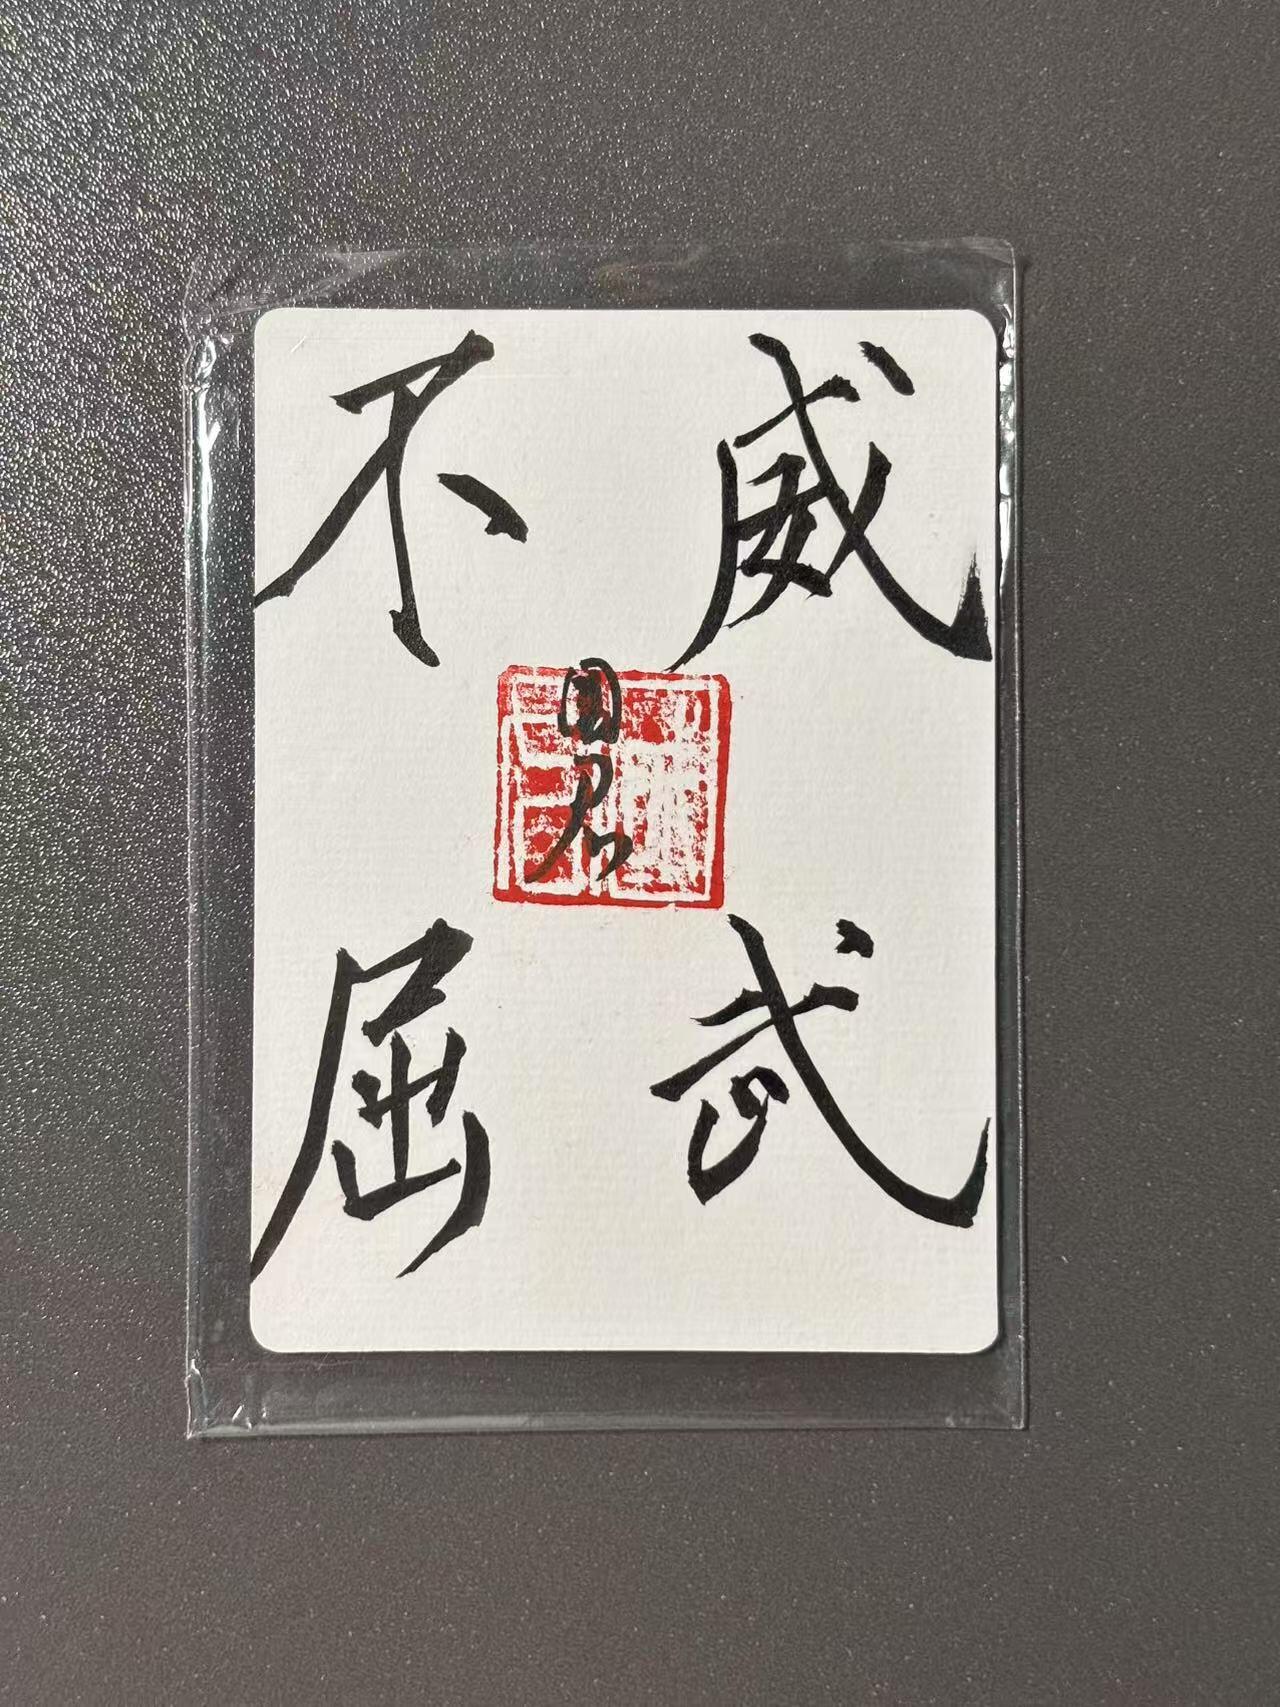 威武
不屈